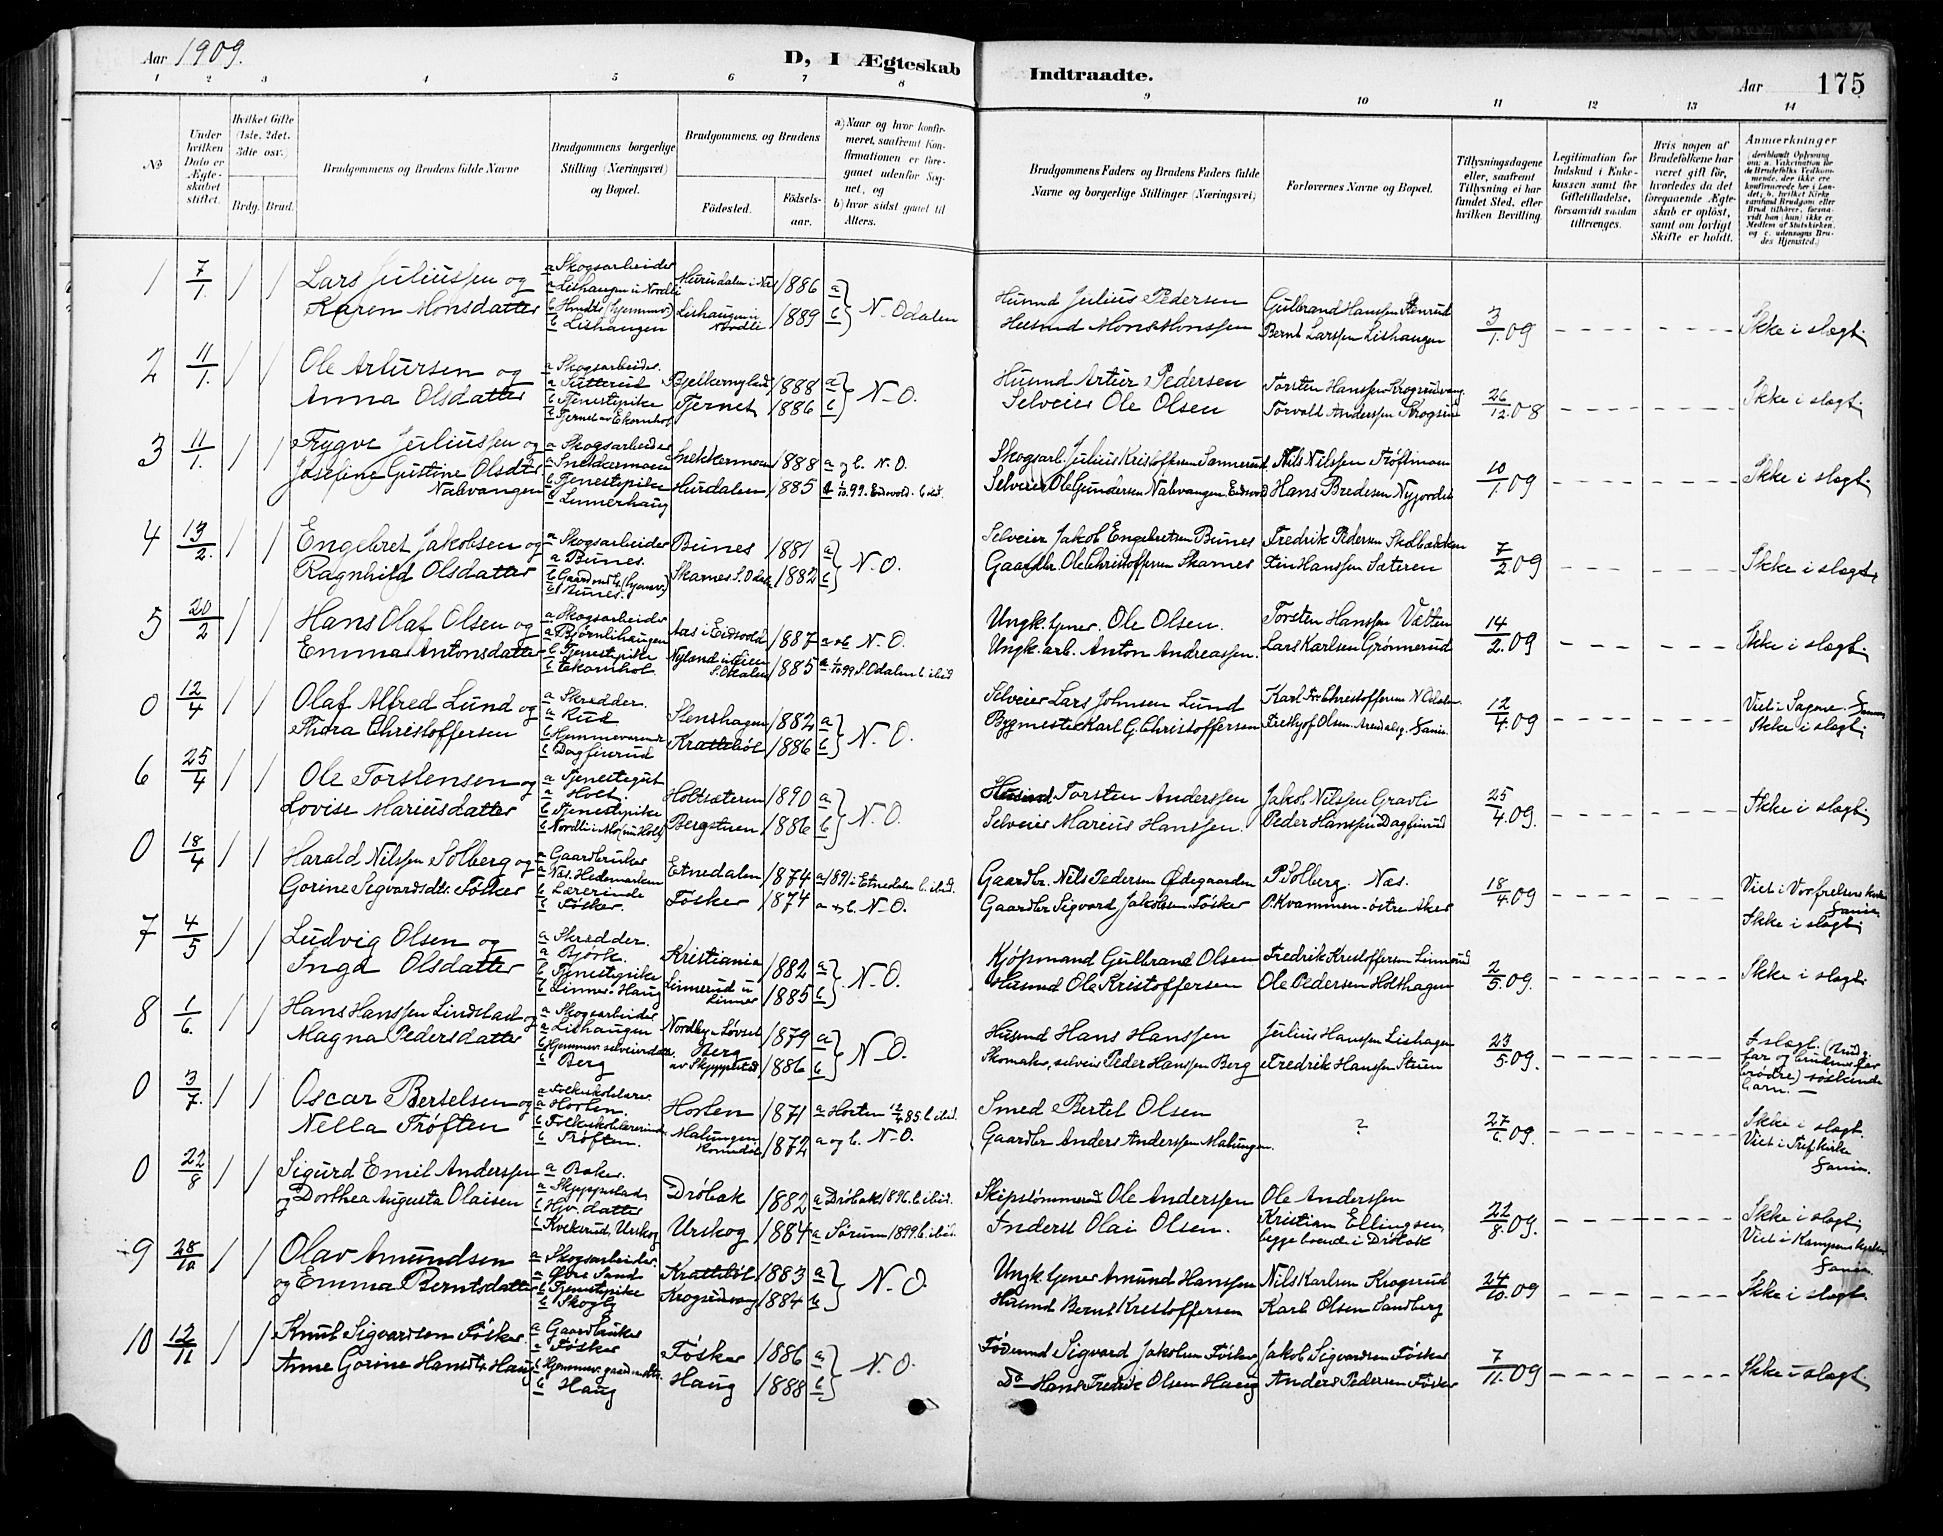 Aar 1909.
D, I Ægteskab
Indtraadte.
Aar 175
1 2 3 4 5 6 7 8 9 10 11 12 13 14
No
Under hvilken Dato er Ægteskabet stiftet.
Hvilket Gifte (1ste, 2det, 3die osv.)
Brdg. Brud.
Brudgommens og Brudens fulde Navne
Brudgommens borgerlige Stilling (Næringsvei) og Bopæl.
Brudgommens og Brudens
Fødested.
Fødselsaar.
a) Naar og hvor konfirmeret, saafremt Konfirmationen er foregaaet udenfor Sognet, og
b) hvor sidst gaaet til Alters.
Brudgommens Faders og Brudens Faders fulde Navne og borgerlige Stillinger (Næringsvei)
Forlovernes Navne og Bopæl.
Tillysningsdagene eller, saafremt Tillysning ei har fundet Sted, efter hvilken Bevilling.
Legitimation for Indskud i Enkekassen samt for Giftetilladelse, forsaavidt saadan tiltrænges.
Hvis nogen af Brudefolkene har været gift før, hvorledes da det foregaaende Ægteskab er opløst, samt om lovligt Skifte er holdt.
Anmærkninger
1 7/1. / / Lars Juliussen og
Karen Monsdatter
a Skogsarbeider
b Lishaugen
1886 a
1889 b N. Odalen
Husmd Julius Pedersen
Husmd Mons Monssen
Gulbrand Hanssen Stenrud
Bernt Larssen Lishaugen
3/1. 09
Ikke i slægt.
2 11/1. / / Ole Artursen og
Anna Olsdatter
a Skogsarbeider.
b Tjenestepike
Tjernet
1888 a
1886 b N. O.
Husmd Artur Pedersen
Selveier Ole Olsen
Torsten Hanssen Krogsrudvang
Torvald Anderssen Krogsrud
26/12. 08
Ikke i slægt.
3 11/1. / / Trygve Juliussen og
Josefine Gustine Olsdtr
Nabvangen
a Skogsarbeider
a Snekkermoen
b Tjenestepike
b Linnerhaug
Snekkermoen 1888 a og b. N. O.
Hurdalen 1885 a 1/10 99. Eidsvold. b ibid.
Skogsarb. Julius Kristoffersen Sannerud
Selveier Ole Gundersen Nabvangen Eidsvold
Nils Nilssen Trøftmoen
Hans Bredesen Nyjordet
10/1. 09
Ikke i slægt.
4 13/2. / / Engebret Jakobsen og
Ragnhild Olsdatter
a Skogsarbeider
a Bunes.
b Bunes.
Bunes 1881 a
Skarnes S. Odal 1882 b N. O.
Selveier Jakob Engebretsen Bunes
Gaardbr. Ole Christoffersen Skarnes
Fredrik Pedersen Skolbækken
Finn Hanssen Sæteren
7/2. 09
Ikke i slægt.
5 20/2 / / Hans Olaf Olsen og
Emma Antonsdatter
a Skogsarbeider
a Bjørnlihaugen
b Tjenestepike
b Ekornhol.
Aas i Eidsvold 1887 a og b N. O.
S. Odalen 1885 a 1/10 99 S. Odalen b. ibid
Ungk. tjener. Ole Olsen.
Ungk. arb. Anton Andreassen.
Torsten Hanssen Vætten
Lars Karlsen Grønnerud
14/2. 09
Ikke i slægt.
0 12/4 / / Olaf Alfred Lund og
Thora Christoffersen
a Skrædder.
a Rud
b Hjemmeværende
b Dagfinrud
Stenshagen 1882 a
Kratebøl 1886 b N. O.
Selveier Lars Johnsen Lund
Bygmester Karl G. Christoffersen
Karl Fr. Christoffersen N. Odalen
Frithjof Olsen. Arendalsg. Xania
12/4. 09
Viet i Sagene. Xania
Ikke i slægt.
6 25/4 / / Ole Torstensen og
Lovise Mariusdatter
a Tjenestegut
a Holt.
b Tjenestepike
Holtsæteren 1890 a
Bergstuen 1886 b N. O.
Husmd. Torsten Anderssen
Selveier Marius Hanssen.
Jakob Nilssen Gravli
Peder Hanssen Dagfinrud
25/4. 09.
Ikke i slægt.
0 18/4 / / Harald Nilssen Solberg og
Gorine Sigvardsdtr. Fösker
a Gaardbruker
a Næs. Hedemarken
b Lærerinde
b Fösker.
Etnedalen 1874 a 1891 i Etnedalen b. ibid.
Fösker 1874 a og b. N. O.
Gaardbr. Nils Pedersen Ødegaarden
Gaardbr Sigvard Jakobsen Fösker
P. Solberg. Næs.
P. Kvammen - østre Aker
18/4. 09
Viet i Vor frelsers kirke
Xania
Ikke i slægt.
7 4/5 / / Ludvig Olsen og
Inga Olsdatter
a Skrædder.
a Bjørk.
b Tjenestepike
b Linner-Haug
Kristiania 1882 a
Linnerud u Linner 1885 b N. O.
Kjøpmand Gulbrand Olsen
Husmd Ole Kristoffersen
Fredrik Kristoffersen Linnerud
Ole Pedersen Holthagen
2/5. 09.
Ikke i slægt.
8 1/6. / / Hans Hanssen Lindstad og
Magna Pedersdatter
a Skogsarbeider
a Lishaugen
b Hjemmev. selveierdatter.
b Berg
Nordby - Løvset 1879 a
Berg av Skyppelstad 1886 b N. O.
Husmd Hans Hanssen
Skomaker, selveier Peder Hanssen Berg
Julius Hanssen Lishagen
Fredrik Hanssen Stuen
23/5. 09.
I slægt. (Brudg. far og brudens far brødre) søskende barn. —
0 3/7. / / Oscar Bertelsen og
Nella Trøften
a Folkeskolelærer.
a Horten.
b Folkeskolelærerinde
b Trøften.
Horten 1871 a Horten 12/4 85 b. ibid.
Malungen Romedal 1872 a og b. N. O.
Smed Bertel Olsen
Gaardbr Anders Anderssen Malungen.
?
27/6. 09.
Ikke i slægt.
Viet i Trefkirke
Xania.
0 22/8 / / Sigurd Emil Anderssen
og Dorthea Augusta Olaisen
a Baker.
a Skyppelstad
b Hjv. datter
b Kvekrud, Urskog
Drøbak 1882 a Drøbak 1896. b. ibid.
Urskog 1884 a Sørum 1899. b. ibid.
Skipstømmermd Ole Anderssen
Inderst Olai Olsen.
Ole Anderssen
Kristian Ellingsen,
begge boende i Drøbak
22/8. 09.
Ikke i slægt.
Viet i Kampens kirke
Xania.
9 28/10 / / Olav Amundsen
og Emma Berntsdatter
a Skogsarbeider.
a Øvre Sand
b Tjenestepike
b Skogly
Kratebøl 1883 a
Krogsrudvang 1884 b N. O.
Ungk. tjener Amund Hanssen
Husmd Bernt Kristoffersen
Nils Karlsen Krogsrud
Karl Olsen Sandberg
24/10. 09
Ikke i slægt.
10 12/11 / / Knut Sigvardsen Fösker
Anne Gorine Hansdtr Haug
a Gaardbruker
a Fösker
b Hjemmev. gaardmdtr.
b Haug
Fösker 1886 a
Haug 1888 b N. O.
Föderaad Sigvard Jakobsen Fösker
Do Hans Fredrik Olsen Haug
Jakob Sigvardsen Fösker
Anders Pedersen Fösker
7/11. 09
Ikke i slægt.